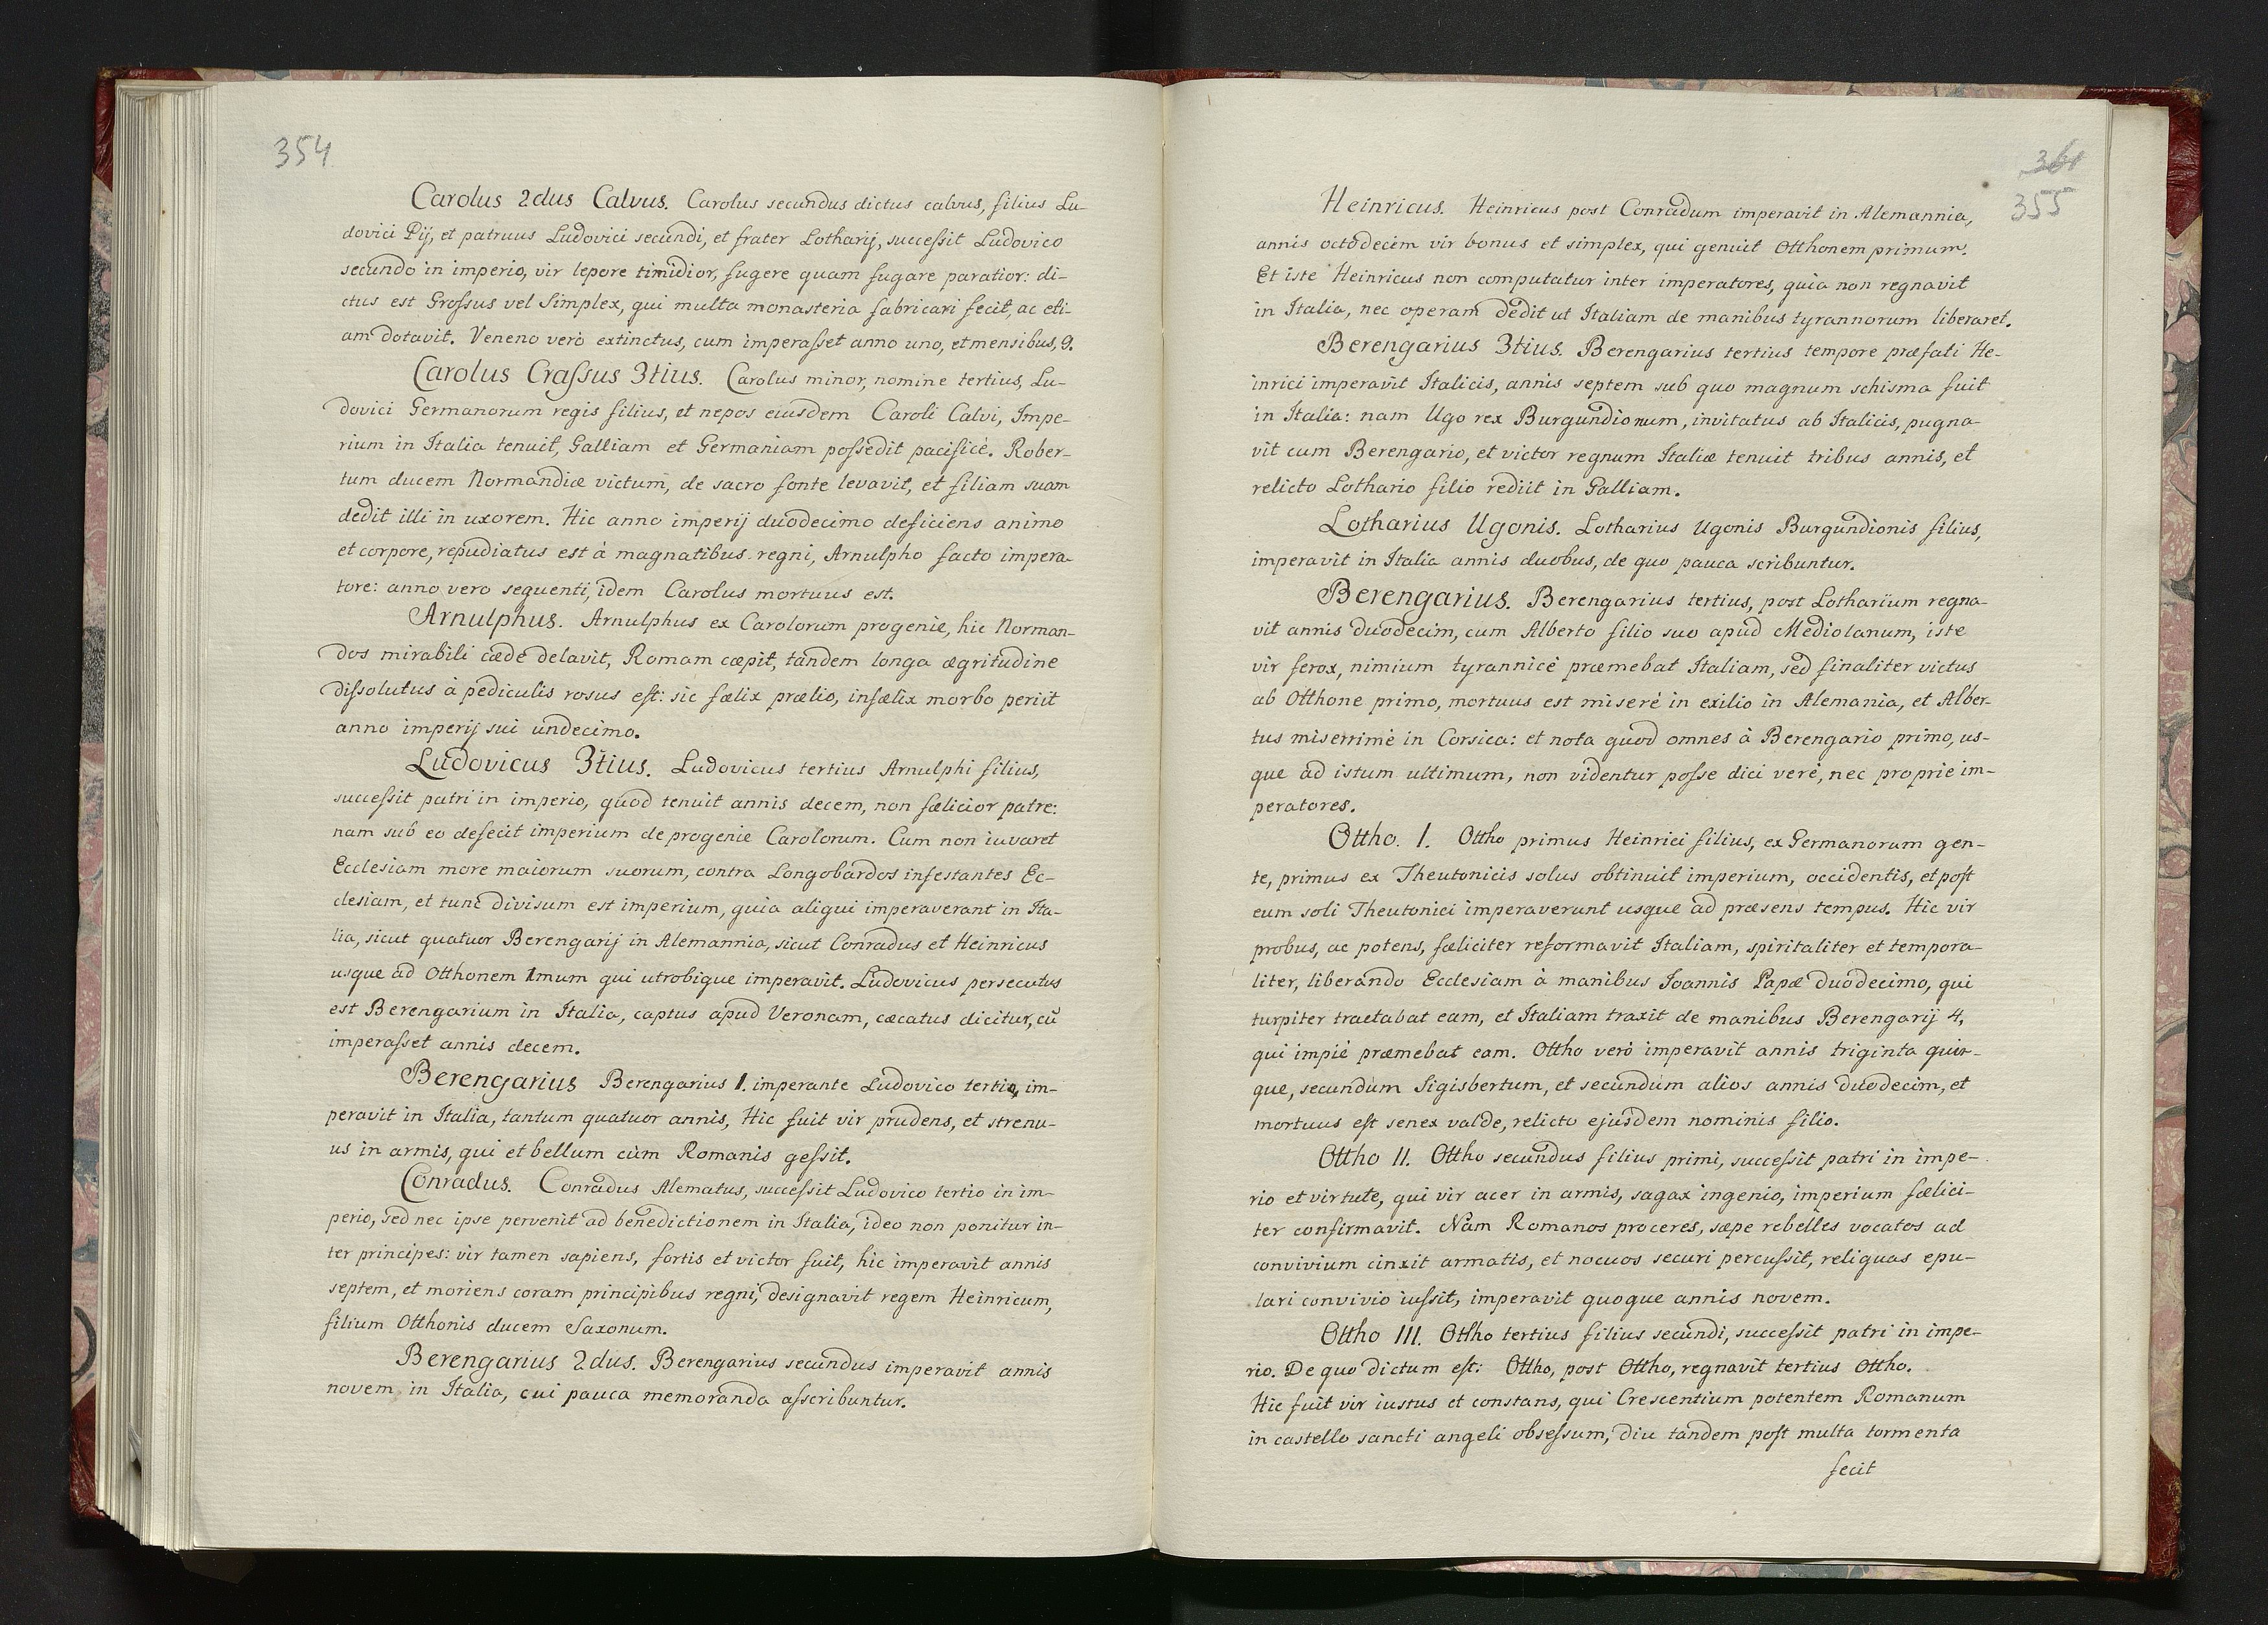 354
Carolus 2dus Calvus. Carolus secundus dictus calvus, filius Lu-
dovici Pij, et patruus Ludovici secundi, et frater Lotharij, successit Ludovico
secundo in imperio, vir lepore timidior, fugere quam fugare paratior: di-
ctus est Grossus vel Simplex, qui multa monasteria fabricari fecit, ac eti-
am dotavit. Veneno verò extinctus, cum imperasset anno uno, et mensibus, 9.
Carolus Crassus 3tius. Carolus minor, nomine tertius, Lu-
dovici Germanorum regis filius, et nepos eiusdem Caroli Calvi, Impe-
rium in Italia tenuit, Galliam et Germaniam possedit pacificè. Rober-
tum ducem Normandiæ victum, de sacro fonte levavit, et filiam suam
dedit illi in uxorem. Hic anno imperij duodecimo deficiens animo
et corpore, repudiatus est à magnatibus regni, Arnulpho facto impera-
tore: anno vero sequenti, idem Carolus mortuus est.
Arnulphus. Arnulphus ex Carolorum progenie, hic Norman-
dos mirabili cæde delavit, Romam cæpit, tandem longa ægritudine
dissolutus à pediculis rosus est: sic fælix prælio, infælix morbo periit
anno imperij sui undecimo.
Ludovicus 3tius. Ludovicus tertius Arnulphi filius,
successit patri in imperio, quod tenuit annis decem, non fælicior patre:
nam sub eo defecit imperium de progenie Carolorum. Cum non iuvaret
Ecclesiam more maiorum suorum, contra Longobardos infestantes Ec-
clesiam, et tunc divisum est imperium, quia aliqui imperaverant in Ita-
lia, sicut quatuor Berengarij in Alemannia, sicut Conradus et Heinricus
usque ad Otthonem 1mum qui utrobique imperavit. Ludovicus persecutus
est Berengarium in Italia, captus apud Veronam, cæcatus dicitur, cū
imperasset annis decem.
Berengarius Berengarius 1. imperante Ludovico tertio, im-
peravit in Italia, tantum quatuor annis, Hic fuit vir prudens, et strenu-
us in armis, qui et bellum cùm Romanis gessit.
Conradus. Conradus Alematus, successit Ludovico tertio in im-
perio, sed nec ipse pervenit ad benedictionem in Italia, ideo non ponitur in-
ter principes: vir tamen sapiens, fortis et victor fuit, hic imperavit annis
septem, et moriens coram principibus regni, designavit regem Heinricum,
filium Otthonis ducem Saxonum.
Berengarius 2dus. Berengarius secundus imperavit annis
novem in Italia, cui pauca memoranda asscribuntur.
361
355
Heinricus. Heinricus post Conradum imperavit in Alemannia,
annis octodecim vir bonus et simplex, qui genuit Otthonem primum.
Et iste Heinricus non computatur inter imperatores, quia non regnavit
in Italia, nec operam dedit ut Italiam de manibus tyrannorum liberaret.
Berengarius 3tius. Berengarius tertius tempore præfati He-
inrici imperavit Italicis, annis septem sub quo magnum schisma fuit
in Italia: nam Ugo rex Burgundionum, invitatus ab Italicis, pugna-
vit cum Berengario, et victor regnum Italiæ tenuit tribus annis, et
relicto Lothario filio rediit in Galliam.
Lotharius Ugonis. Lotharius Ugonis Burgundionis filius,
imperavit in Italia annis duobus, de quo pauca scribuntur.
Berengarius. Berengarius tertius, post Lotharium regna-
vit annis duodecim, cum Alberto filio suo apud Mediolanum, iste
vir ferox, nimium tyrannicè præmebat Italiam, sed finaliter victus
ab Otthone primo, mortuus est miserè in exilio in Alemania, et Alber-
tus miserrimè in Corsica: et nota quod omnes à Berengario primo, us-
que ad istum ultimum, non videntur posse dici verè, nec propriè im-
peratores.
Ottho. I. Ottho primus Heinrici filius, ex Germanorum gen-
te, primus ex Theutonicis solus obtinuit imperium, occidentis, et post
eum soli Theutonici imperaverunt usque ad præsens tempus. Hic vir
probus, ac potens, fæliciter reformavit Italiam, spiritaliter et tempora-
liter, liberando Ecclesiam à manibus Joannis Papæ duodecimo, qui
turpiter tractabat eam, et Italiam traxit de manibus Berengarij 4,
qui impiè præmebat eam. Ottho verò imperavit annis triginta quin-
que, secundùm Sigisbertum, et secundùm alios annis duodecim, et
mortuus est senex valde, relicto ejusdem nominis filio.
Ottho II. Ottho secundus filius primi, successit patri in impe-
rio et virtute, qui vir acer in armis, sagax ingenio, imperium fælici-
ter confirmavit. Nam Romanos proceres, sæpe rebelles vocatos ad
convivium cinxit armatis, et nocuos securi percussit, reliquas epu-
lari convivio iussit, imperavit quoque annis novem.
Ottho III. Ottho tertius filius secundi, successit patri in impe-
rio. De quo dictum est: Ottho, post Ottho, regnavit tertius Ottho.
Hic fuit vir iustus et constans, qui Crescentium potentem Romanum
in castello sancti angeli obsessum, diu tandem post multa tormenta
fecit